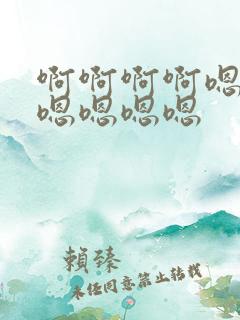 啊啊啊啊嗯
嗯嗯嗯嗯
賴臻
未经同意禁止转载